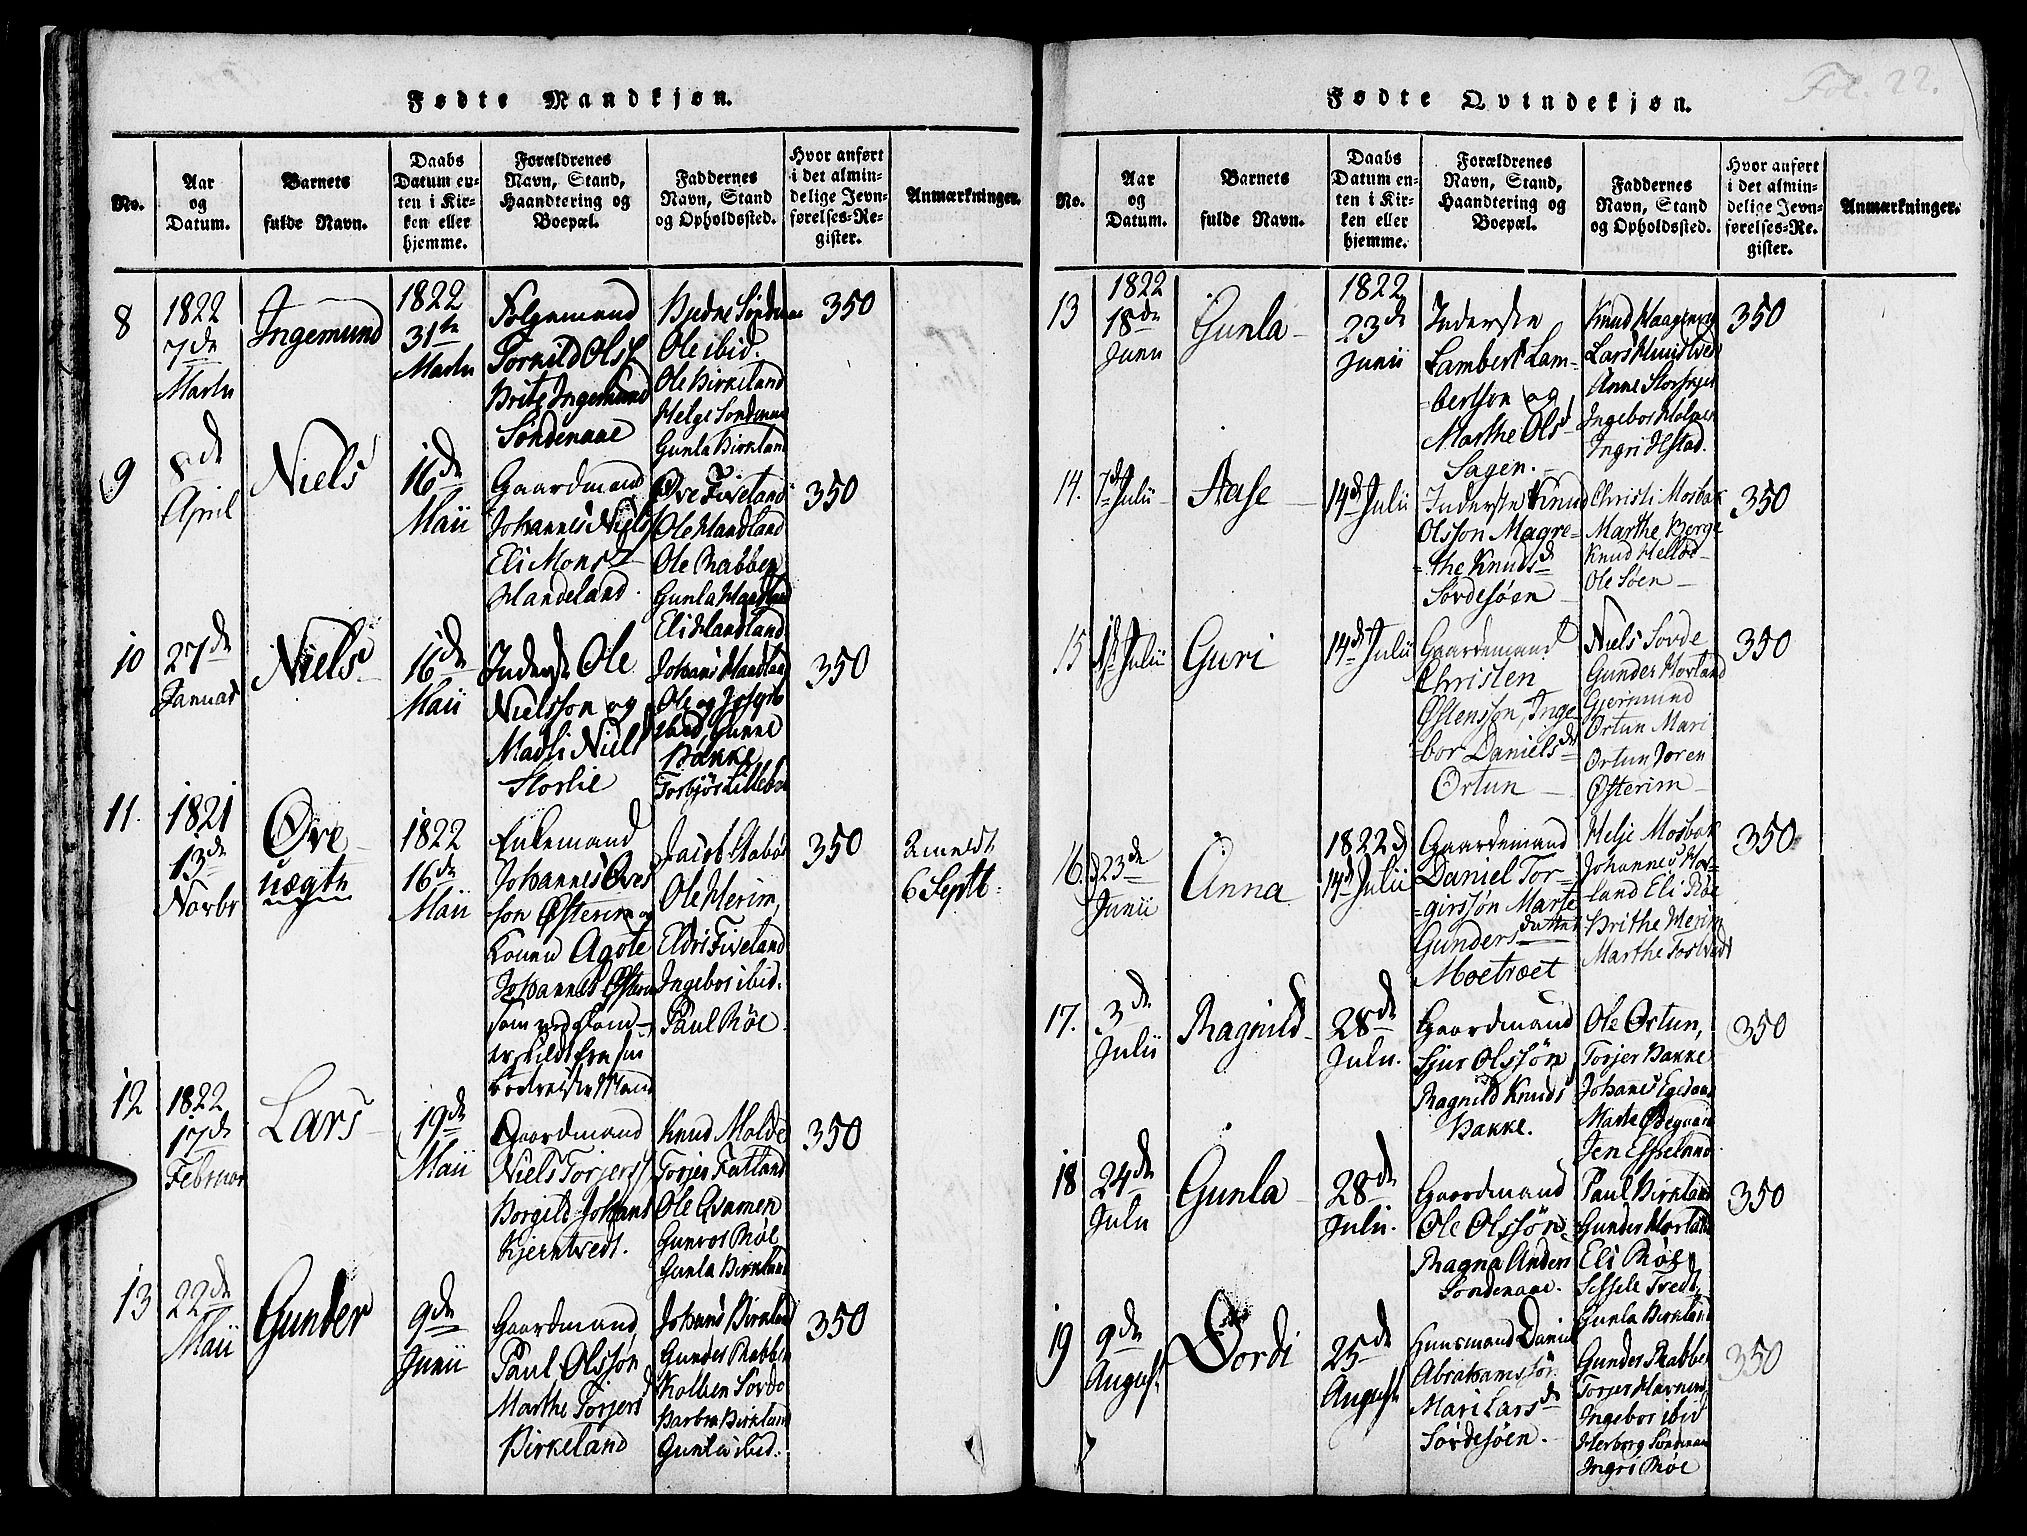 Fødte Mandkjøn.
No.
Aar
og
Datum.
Barnets
fulde Navn.
Daabs
Datum en-
ten i Kir-
ken eller
hjemme.
Forældrenes
Navn, Stand,
Haandtering og
Boepæl.
Faddernes
Navn, Stand
og Opholdssted.
Hvor anført
i det almin-
delige Jevn-
førelses-Re-
gister.
Anmærkninger.
8
1822
7de
Martii
Ingemund
1822
31te
Martii
Torkild Ols
Brite Ingemund
Søndenaae
Ole ibid.
Ole Birkeland
Helge Sondenaae
Gunla Birkland
350
9
8de
April
Niels
16de
Maii
Gaardmand
Johannes Niels
Eli Monsd
Handeland
Ove Fiveland
Ole Handland
Ole Rabben
Gunla Handland
Eli Handland
350
10
27de
Januar
Niels
16de
Maii
Inderste Ole
Nielsson og
Madli Niels
Storlie
Johans Handland
Ole og
Gunne
Bakke
350
11.
1821
13de
Novbr
Ove
uægte
1822
16de
Maii
Enkemand
Johannes Oves
son Østerim og
Konen Agote
Johannes Østerim
som ved Dom
er skildt fra sin
Jacob Aabø
Ole Herim,
Eldri Fiveland
Ingebor ibid.
Paul Røe
350
Anmeldt
6 Septb:
12
1822
17de
Februar
Lars
19de
Maii
Gaardmand
Niels Torjers
Borgild Johans
Hjerntvedt.
Knud Molde
Torjer Fatland
Ole Qvamen
Gunvor Røe
Gunla Birkland
350
13
22de
Maii
Gunder
9de
Junii
Gaardmand
Paul Olsson
Marthe Torjersd
Birkeland
Johans Birkland
Gunder Rabben
Kolben Sørdo
Barbra Birkland
Gunla ibid.
350
Fol. 22.
Fødte Qvindekjøn.
No.
Aar
og
Datum.
Barnets
fulde Navn.
Daabs
Datum en-
ten i Kir-
ken eller
hjemme.
Forældrenes
Navn, Stand,
Haandtering og
Boepæl.
Faddernes
Navn, Stand
og Opholdssted.
Hvor anført
i det almin-
delige Jevn-
førelses-Re-
gister.
Anmærkninger.
13
1822
18de
Junii
Gunla
1822
23de
Junii
Inderste
Lambert Lam-
bertson og
Marthe Olsd
Sagen.
Knud Haagen
Anne
Ingebor
Ingri Ilstad.
350
14.
7de Julii
Aase
14de Julii
Inderste Knud
Olsson Magre-
the Knudsd
Sørdesøen
Christi Mosbak
Marthe Berge
Knud
Ole Søen
350
15
1ste Julii
Guri
14de Julii
Gaardemand
Christen
Østensson, Inge
bor Danielsd
Ortun
Niels Sørde
Gunder Horland
Gjermund
Ortun Mari
Ortun Joren
Østerim
350
16.
23de
Junii
Anna
1822
14de Julii
Gaardemand
Daniel Tor-
girsson Marte
Gunders datter
Moetræet
Helje Mosbak
Johannes Hor-
land Eli Røe
Brithe Herim
Marthe
350
17.
3de
Julii
Ragnild
28de
Julii.
Gaardmand
Sjur Olssøn
Ragnild Knuds
Bakke.
Ole Ortun,
Torjer Bakke
Johans
Marte Ødegaard
Jen Esseland
350
18
24de
Julii
Gunla
28de
Julii.
Gaardmand
Ole Olssøn
Ragna Anders
Søndenaae.
Paul Birkland
Gunder Horland
Eli Røe
Sessele Tvedt
Gunla Birkland
350
19
9de
August
Dordi
25de
August
Huusmand Daniel
Abrahamssøn
Mari Larsd
Sørdesøen
Gunder Rabben
Torjer
Ingebor ibid
Herborg Søndenaa
Ingri Røe
350